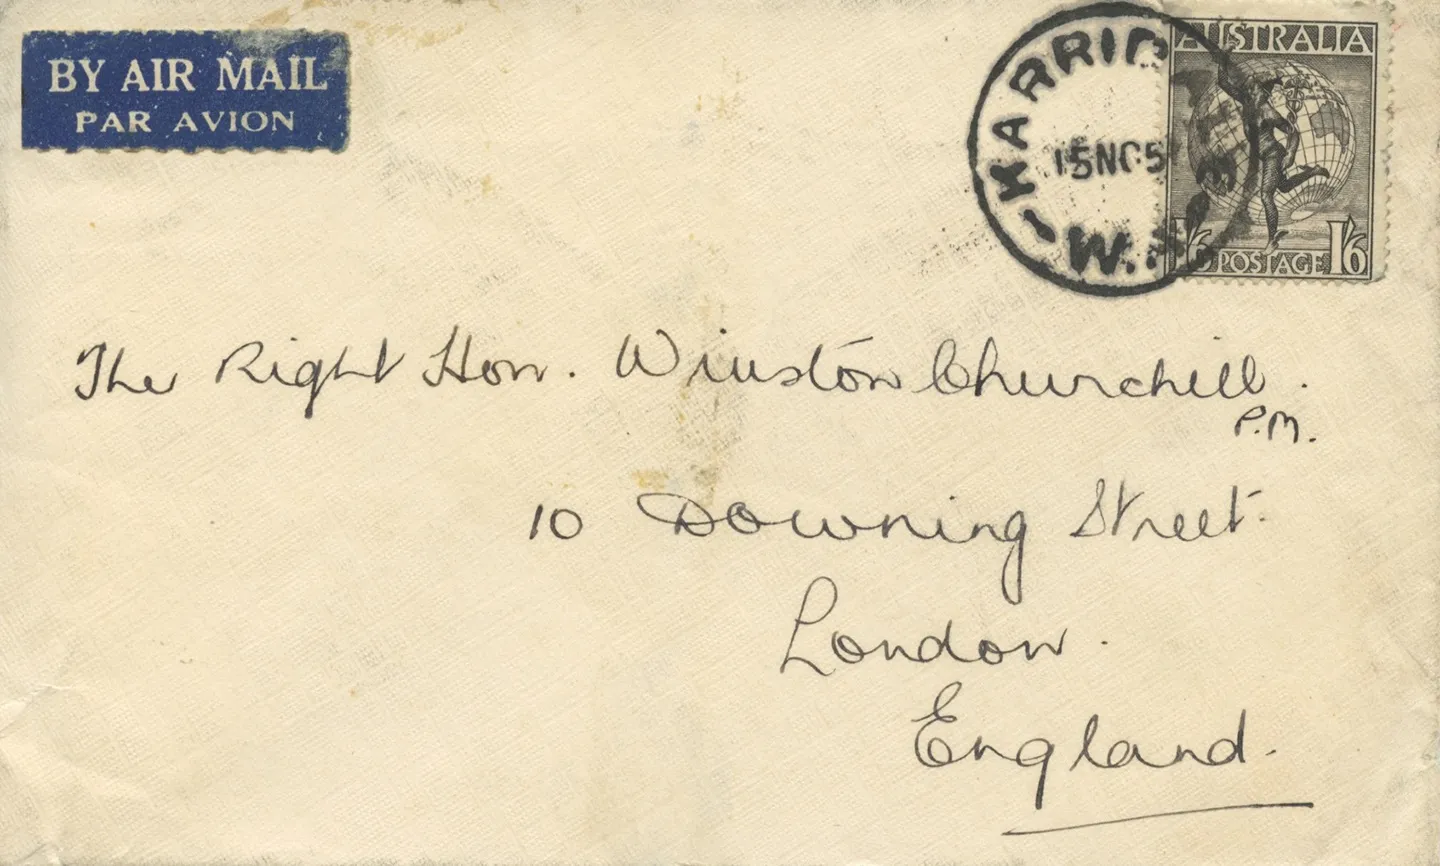 BY AIR MAIL
PAR AVION
KARRIDALE
15NO5
W.A.
AUSTRALIA
1/6 POSTAGE 1/6
The Right Hon. Winston Churchill.
P.M.
10 Downing Street.
London.
England.